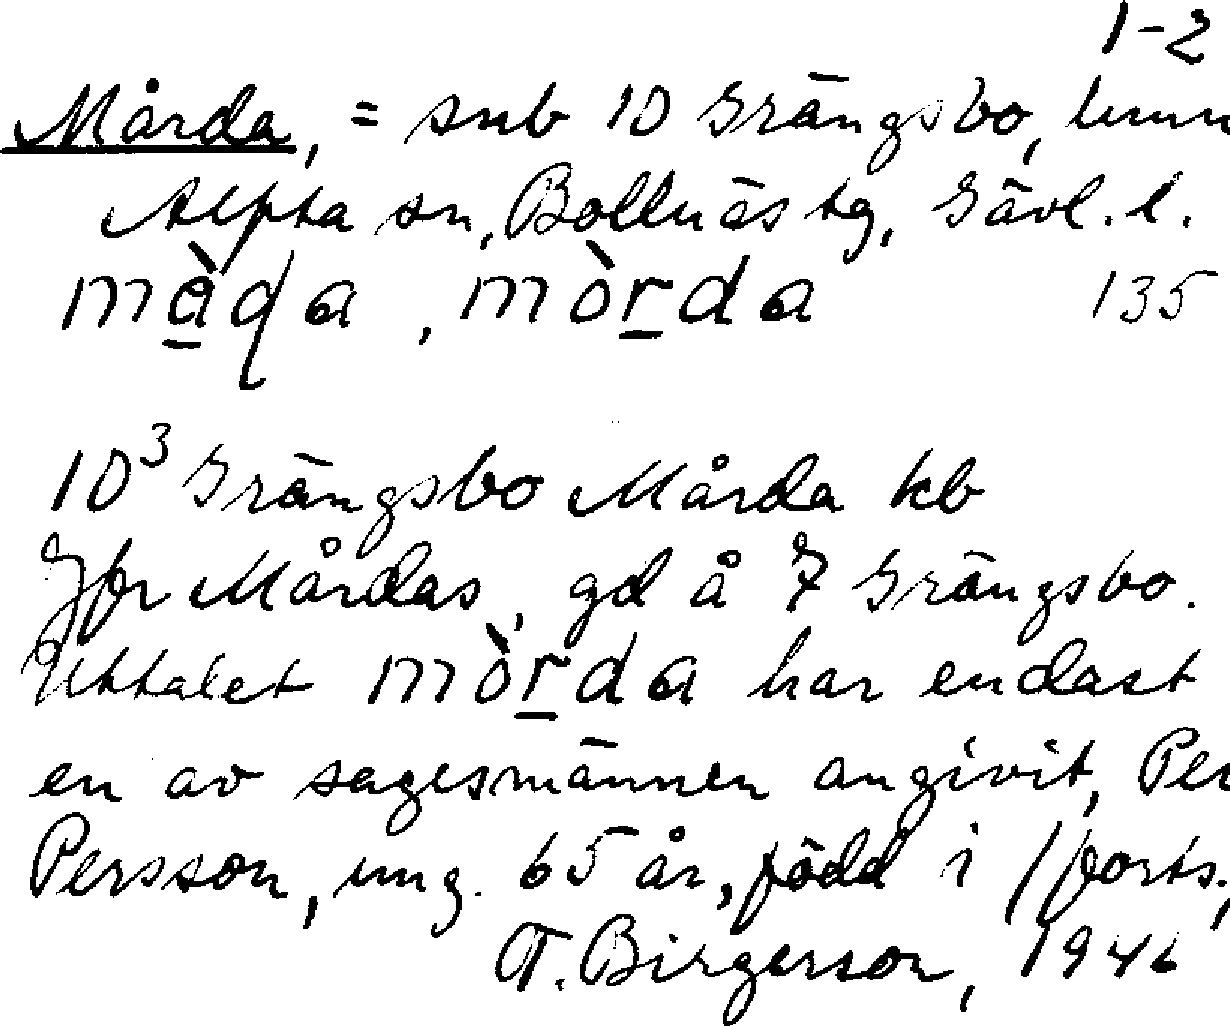 1-2
Mårda, = smb 10 Grängsbo,
Alfta sn, Bollnäs tg, Gävl. l.
mòrda
135
10³ Grängsbo Mårda kb
Jfr Mårdas, gd å 7 Grängsbo.
Uttalet mòrda har endast
en av sagesmännen angivit, Per
Persson, ung. 65 år, född i /forts.,
T. Birgerson, 1946